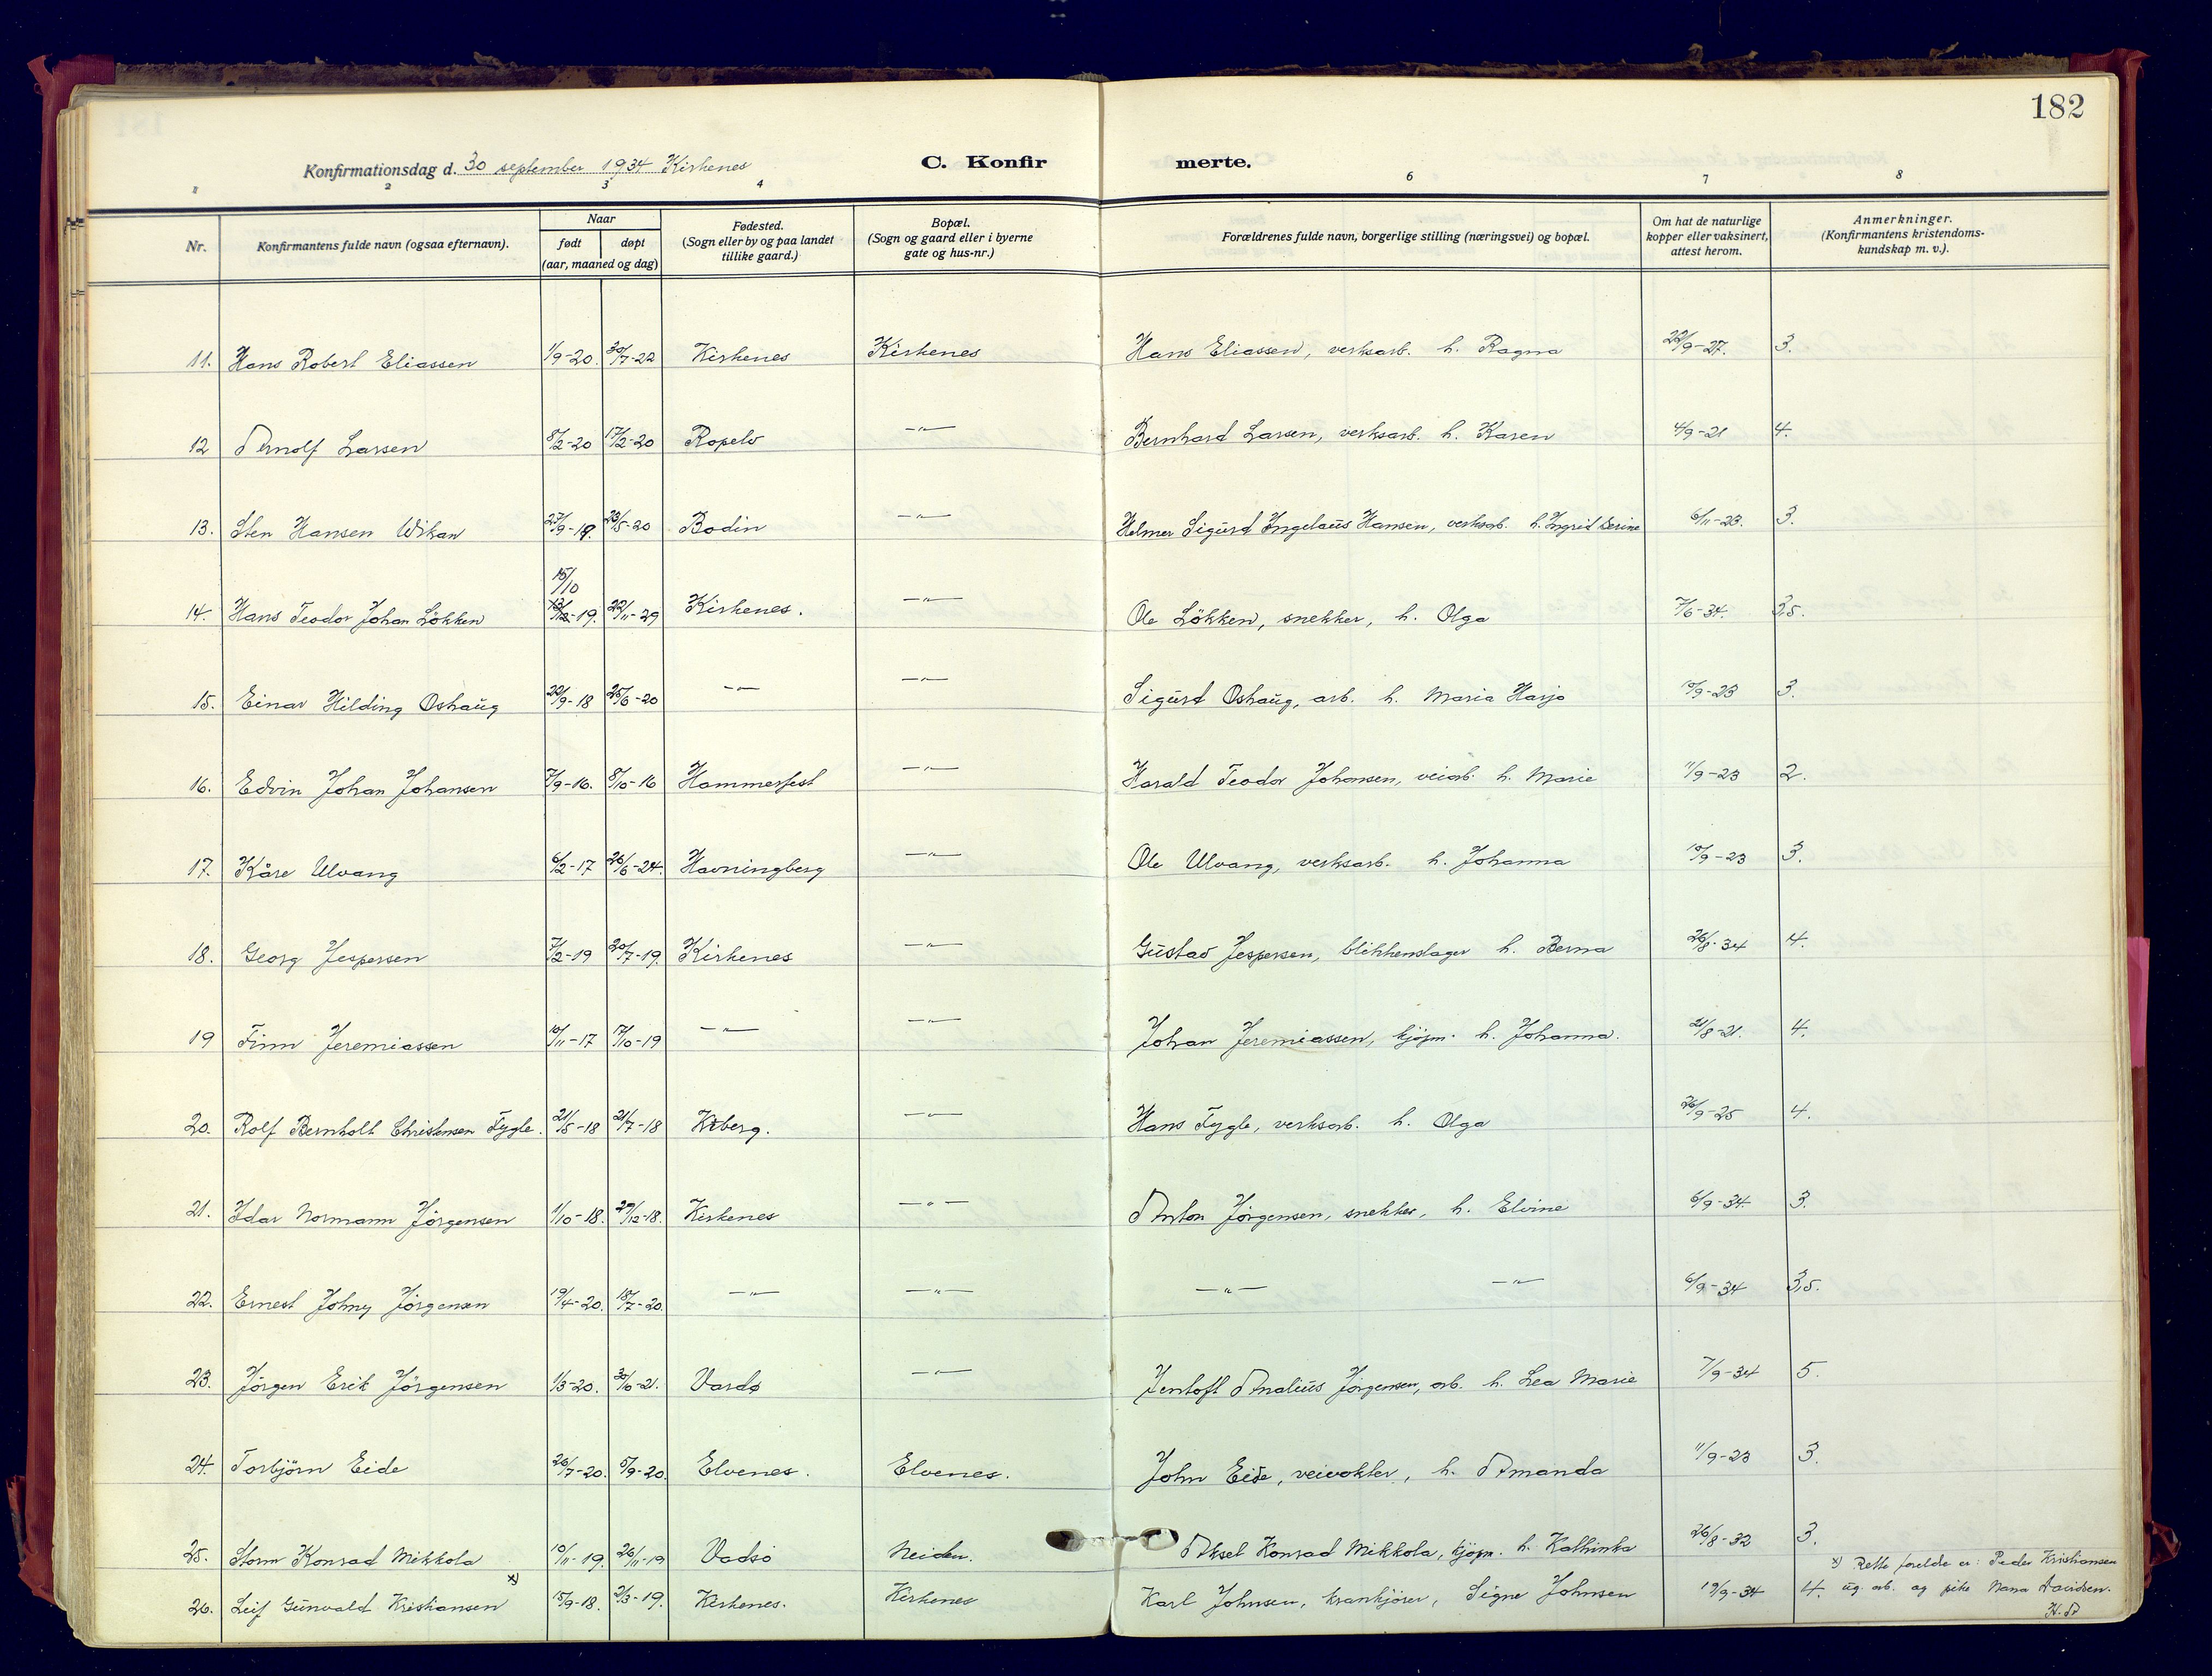 182
Konfirmationsdag d. 30 september 1934 Kirkenes
C. Konfir merte.
1 2 3 4 6 7 8
Nr. Konfirmantens fulde navn (ogsaa efternavn). Naar født døpt (aar, maaned og dag) Fødested. (Sogn eller by og paa landet tillike gaard.) Bopæl. (Sogn og gaard eller i byerne gate og hus-nr.) Forældrenes fulde navn, borgerlige stilling (næringsvei) og bopæl. Om hat de naturlige kopper eller vaksinert, attest herom. Anmerkninger. (Konfirmantens kristendoms-kundskap m. v.).
11. Hans Robert Eliassen 1/9-20. 30/7-22 Kirkenes Kirkenes Hans Eliassen, verksarb. h. Ragna 22/9-27. 3.
12 Arnolf Larsen 8/2-20 17/2-20 Ropelv —"— Bernhard Larsen, verksarb. h. Karen 4/9-21 4.
13. Sten Hansen Wikan 27/9-19. 23/5-20 Bodin —"— Helmer Sigurd Ingelaus Hansen, verksarb. h. Ingrid Serine 6/11-23. 3.
15/10
14. Hans Teodor Johan Lökken -19. 22/11-29 Kirkenes. —"— Ole Lökken, snekker, h. Olga 7/6-34. 3,5.
15. Einar Hilding Oshaug 22/9-18 25/6-20 —"— —"— Sigurd Oshaug, arb. h. Maria Harjo 10/9-23 3.
16. Edvin Johan Johansen 7/9-16. 8/10-16 Hammerfest —"— Harald Teodor Johansen, veiarb. h. Marie 11/9-23 2.
17. Kåre Ulvang 6/2-17 26/6-24. Havningberg —"— Ole Ulvang, verksarb. h. Johanna 10/9-23 3.
18. Georg Jespersen 7/2-19 20/7-19. Kirkenes —"— Gustav Jespersen, blikkenslager h. Berna 26/8-34 4.
19 Finn Jeremiassen 10/11-17 17/10-19 —"— —"— Johan Jeremiassen, kjöpm. h. Johanna. 21/8-21. 4.
20. Rolf Bernholt Christensen Tygle. 21/5-18 21/7-18 Kiberg. —"— Hans Tygle, verksarb. h. Olga 26/9-25 4.
21. Idar Normann Jörgensen 1/10-18. 29/12-18. Kirkenes —"— Anton Jörgensen, snekker, h. Elvine 6/9-34. 3.
22. Ernest Johny Jörgensen 19/4-20. 18/7-20. —"— —"— —"— —"— 6/9-34 3,5.
23. Jörgen Erik Jörgensen 1/3-20. 30/10-21. Vardø —"— Jentoft Analius Jörgensen, arb. h. Lea Marie 7/9-34 5.
24. Torbjörn Eide 26/7-20. 5/9-20. Elvenes. Elvenes. John Eide, veivokter, h. Amanda 11/9-23 3.
25. Storm Konrad Mikkola 10/11-19. 26/11-19 Vadsö Neiden. Aksel Konrad Mikkola, kjöpm. h. Kathinka 26/8-32 3.
26. Leif Gunvald Kristiansen x) 15/9-18. 2/3-19. Kirkenes. Kirkenes Karl Johnsen, krankjörer, Signe Johnsen 19/9-34 4.
x) Rette forelde er: Peder Kristiansen
ug. arb. og pike Nana Davidsen.
H. A